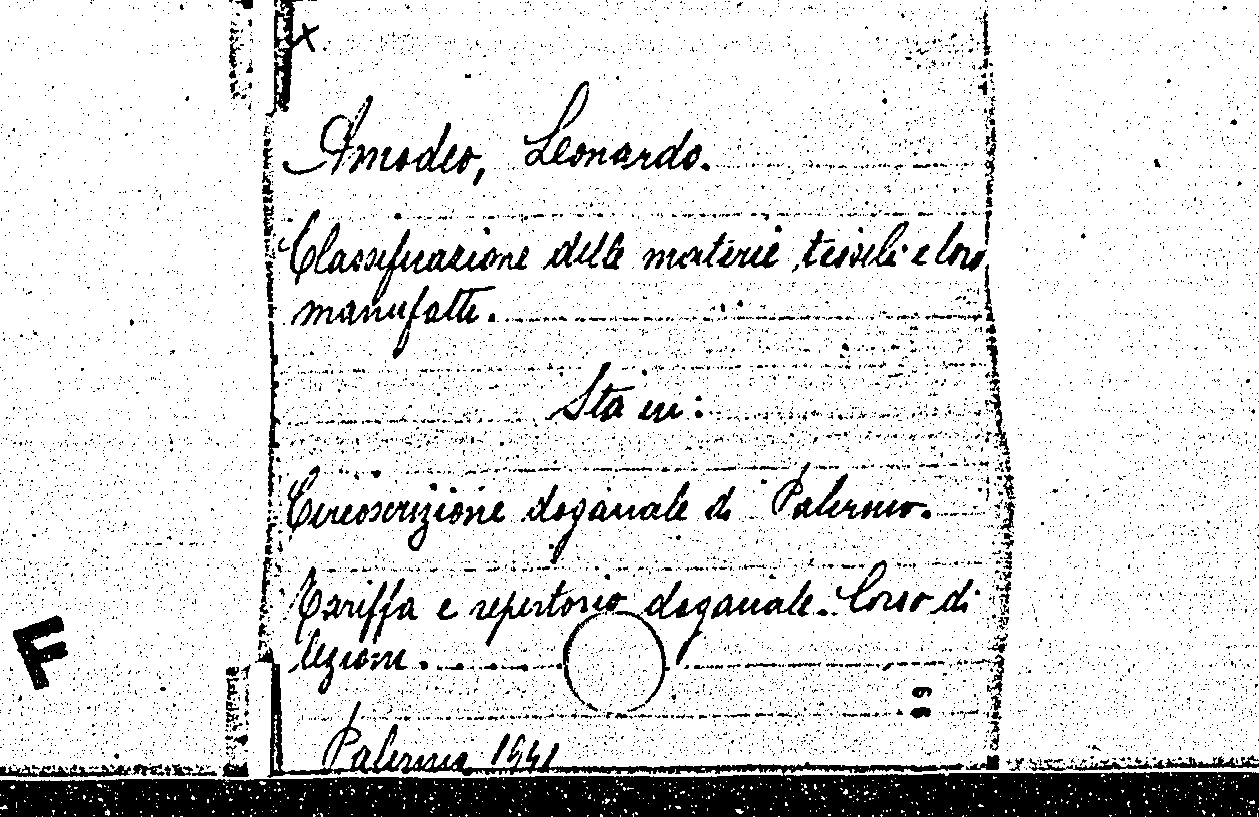 X
Amodeo, Leonardo.
Classificazione delle materie tessili e loro
manufatti.
Sta in:
Circoscrizione doganale di Palermo.
Tariffa e repertorio doganale. Corso di
lezioni.
F
Palermo 1941